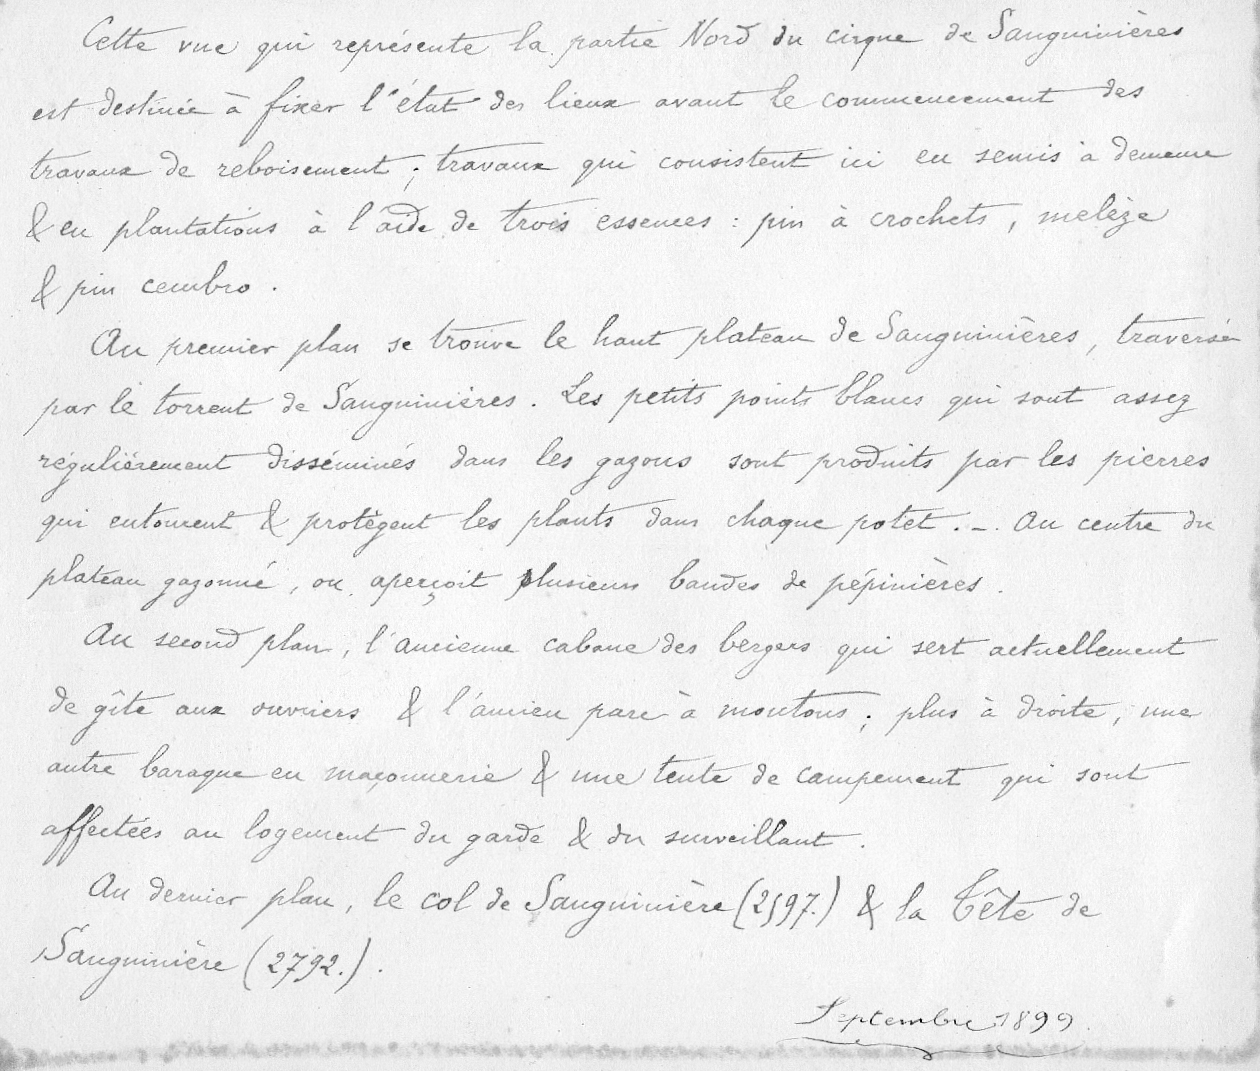 Cette vue qui représente la partie Nord du cirque de Sanguinières
est destinée à fixer l'état des lieux avant le commencement des
travaux de reboisement ; travaux qui consistent ici en semis à demeure
& en plantations à l'aide de trois essences : pin à crochets, melèze
& pin cembro.
Au premier plan se trouve le haut plateau de Sanguinières, traversé
par le torrent de Sanguinières. Les petits points blancs qui sont assez
régulièrement disséminés dans les gazons sont produits par les pierres
qui entourent & protègent les plants dans chaque potet. _ . Au centre du
plateau gazonné, on aperçoit plusieurs bandes de pépinières.
Au second plan, l'ancienne cabane des bergers qui sert actuellement
de gîte aux ouvriers & l'ancien parc à moutons ; plus à droite, une
autre baraque en maçonnerie & une tente de campement qui sont
affectées au logement du garde & du surveillant.
Au dernier plan, le col de Sanguinière (2597.) & la Tête de
Sanguinière (2792.).
Septembre 1899.